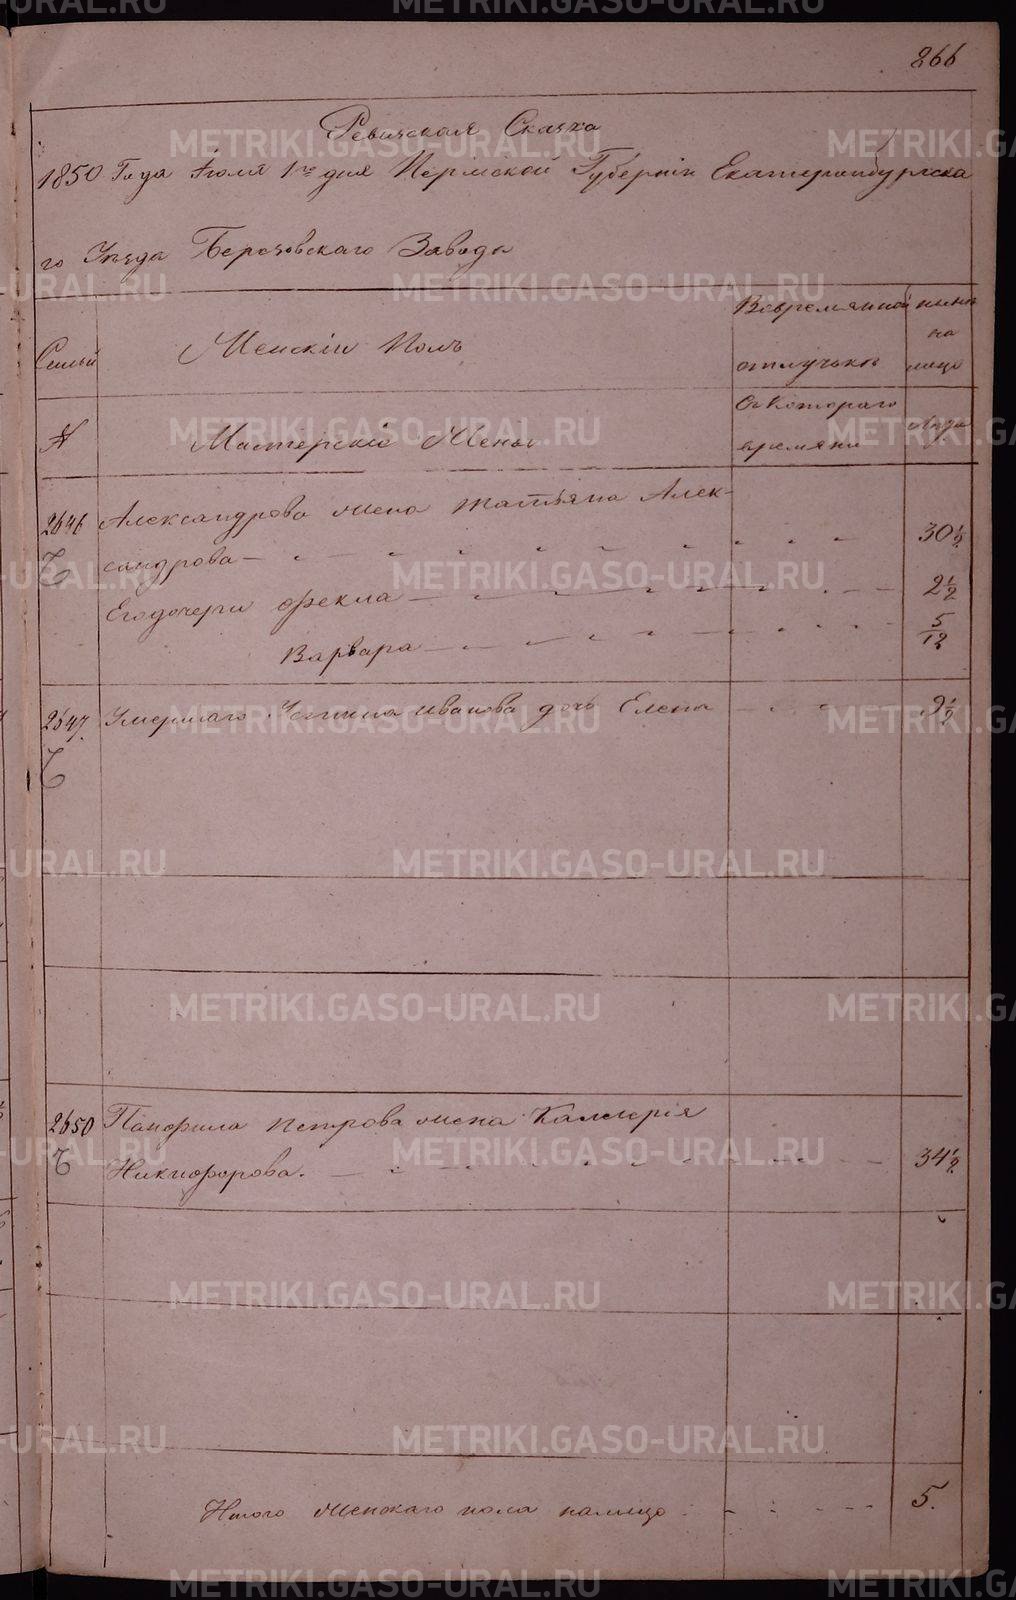 266
Ревизская Сказка
1850 Года Іюля 1го дня Пермской Губерніи Екатеринбургска
го Уѣзда Березовскаго Завода
Семьи
Женскій Полъ
Вовременной
отлучькѣ
нынѣ
на
лицо
№
Мастерскіе Жены
Съ Котораго
времяни
лѣта
2646
Александрова жена Татьяна Алек-
сандрова
30 1/2
Его дочери Фекла
2 1/2
Варвара
5/12
2647.
Умершаго Устина Иванова дочь Елена
9 1/2
2650
Панфила Петрова жена Калерія
Никифорова.
34 1/2
Итого женскаго пола налицо
5.
METRIKI.GASO-URAL.RU